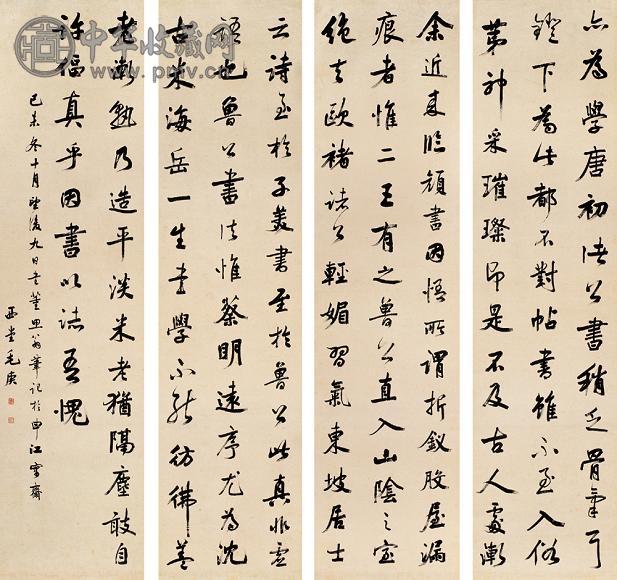 亦為學唐初諸公書稍乏骨氣耳
鐙下為此都不對帖書雖不至入俗
第神采璀璨即是不及古人處漸
余近來臨顏書因悟所謂折釵股屋漏
痕者惟二王有之魯公直入山陰之室
絕去歐褚諸公輕媚習氣東坡居士
云詩至於子美書至於魯公此真非虛
語也魯公書法惟蔡明遠序尤為沈
古米海岳一生去學不能彷彿蓋
老漸熟乃造平淡米老猶隔塵敢自
許偪真乎因書以誌吾愧
己未冬十月望後九日書董思翁筆記於申江寓齋
西堂毛庚
中华收藏网